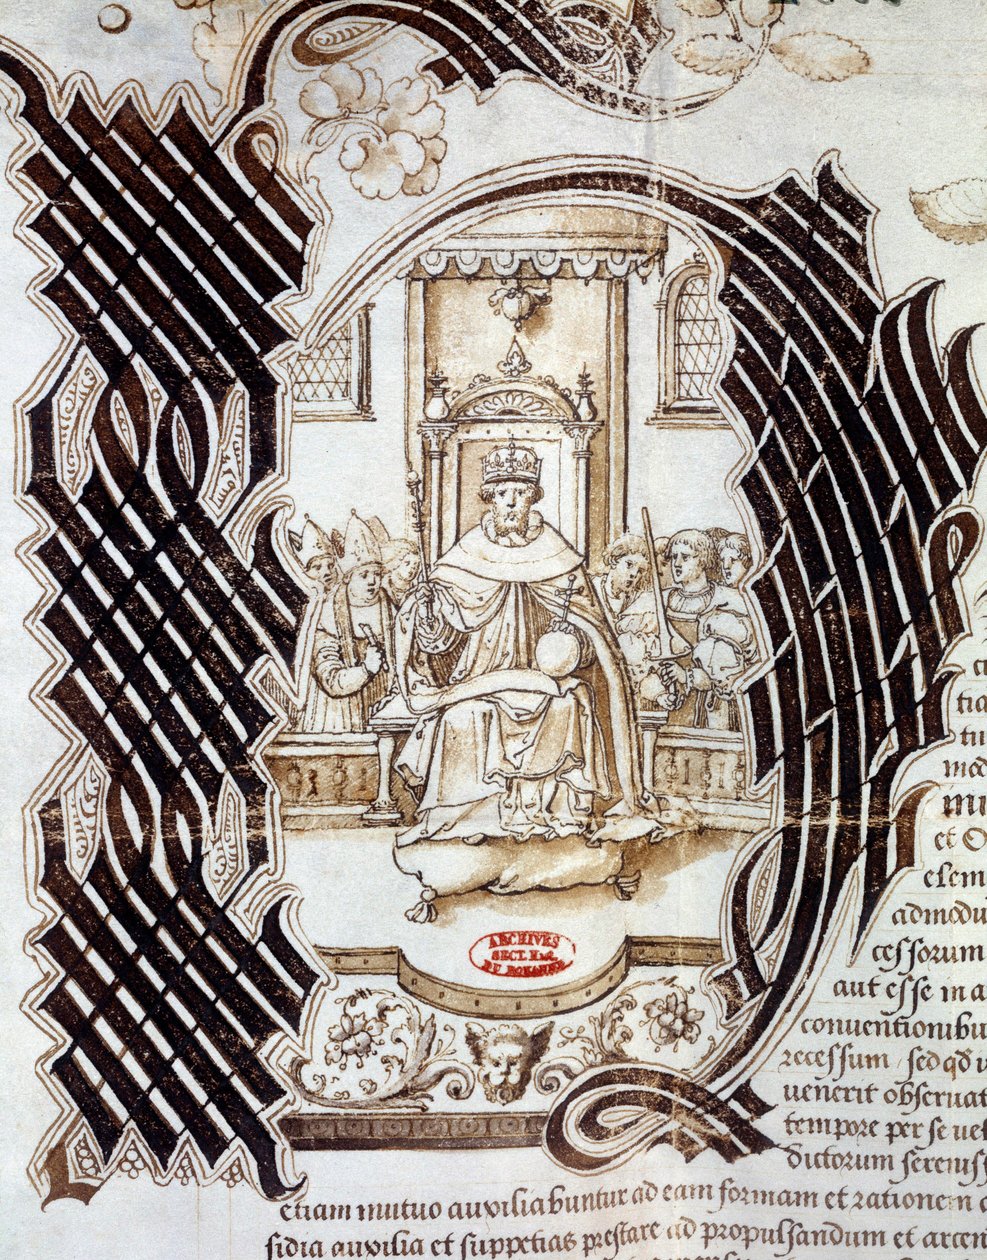 ARCHIVES
SECT. HIST.
DU ROYAUME
c
tia
tu
mod
mi
et O
elem
admodu
cessorum
aut esse in a
conventionibu
recessum sed qd u
venerit observat
tempore per se ves
dictorum sereniss
etiam mutuo auxiliabuntur ad eam formam et rationem c
sidia auxilia et suppetias prestare ad propulsandum et arcen